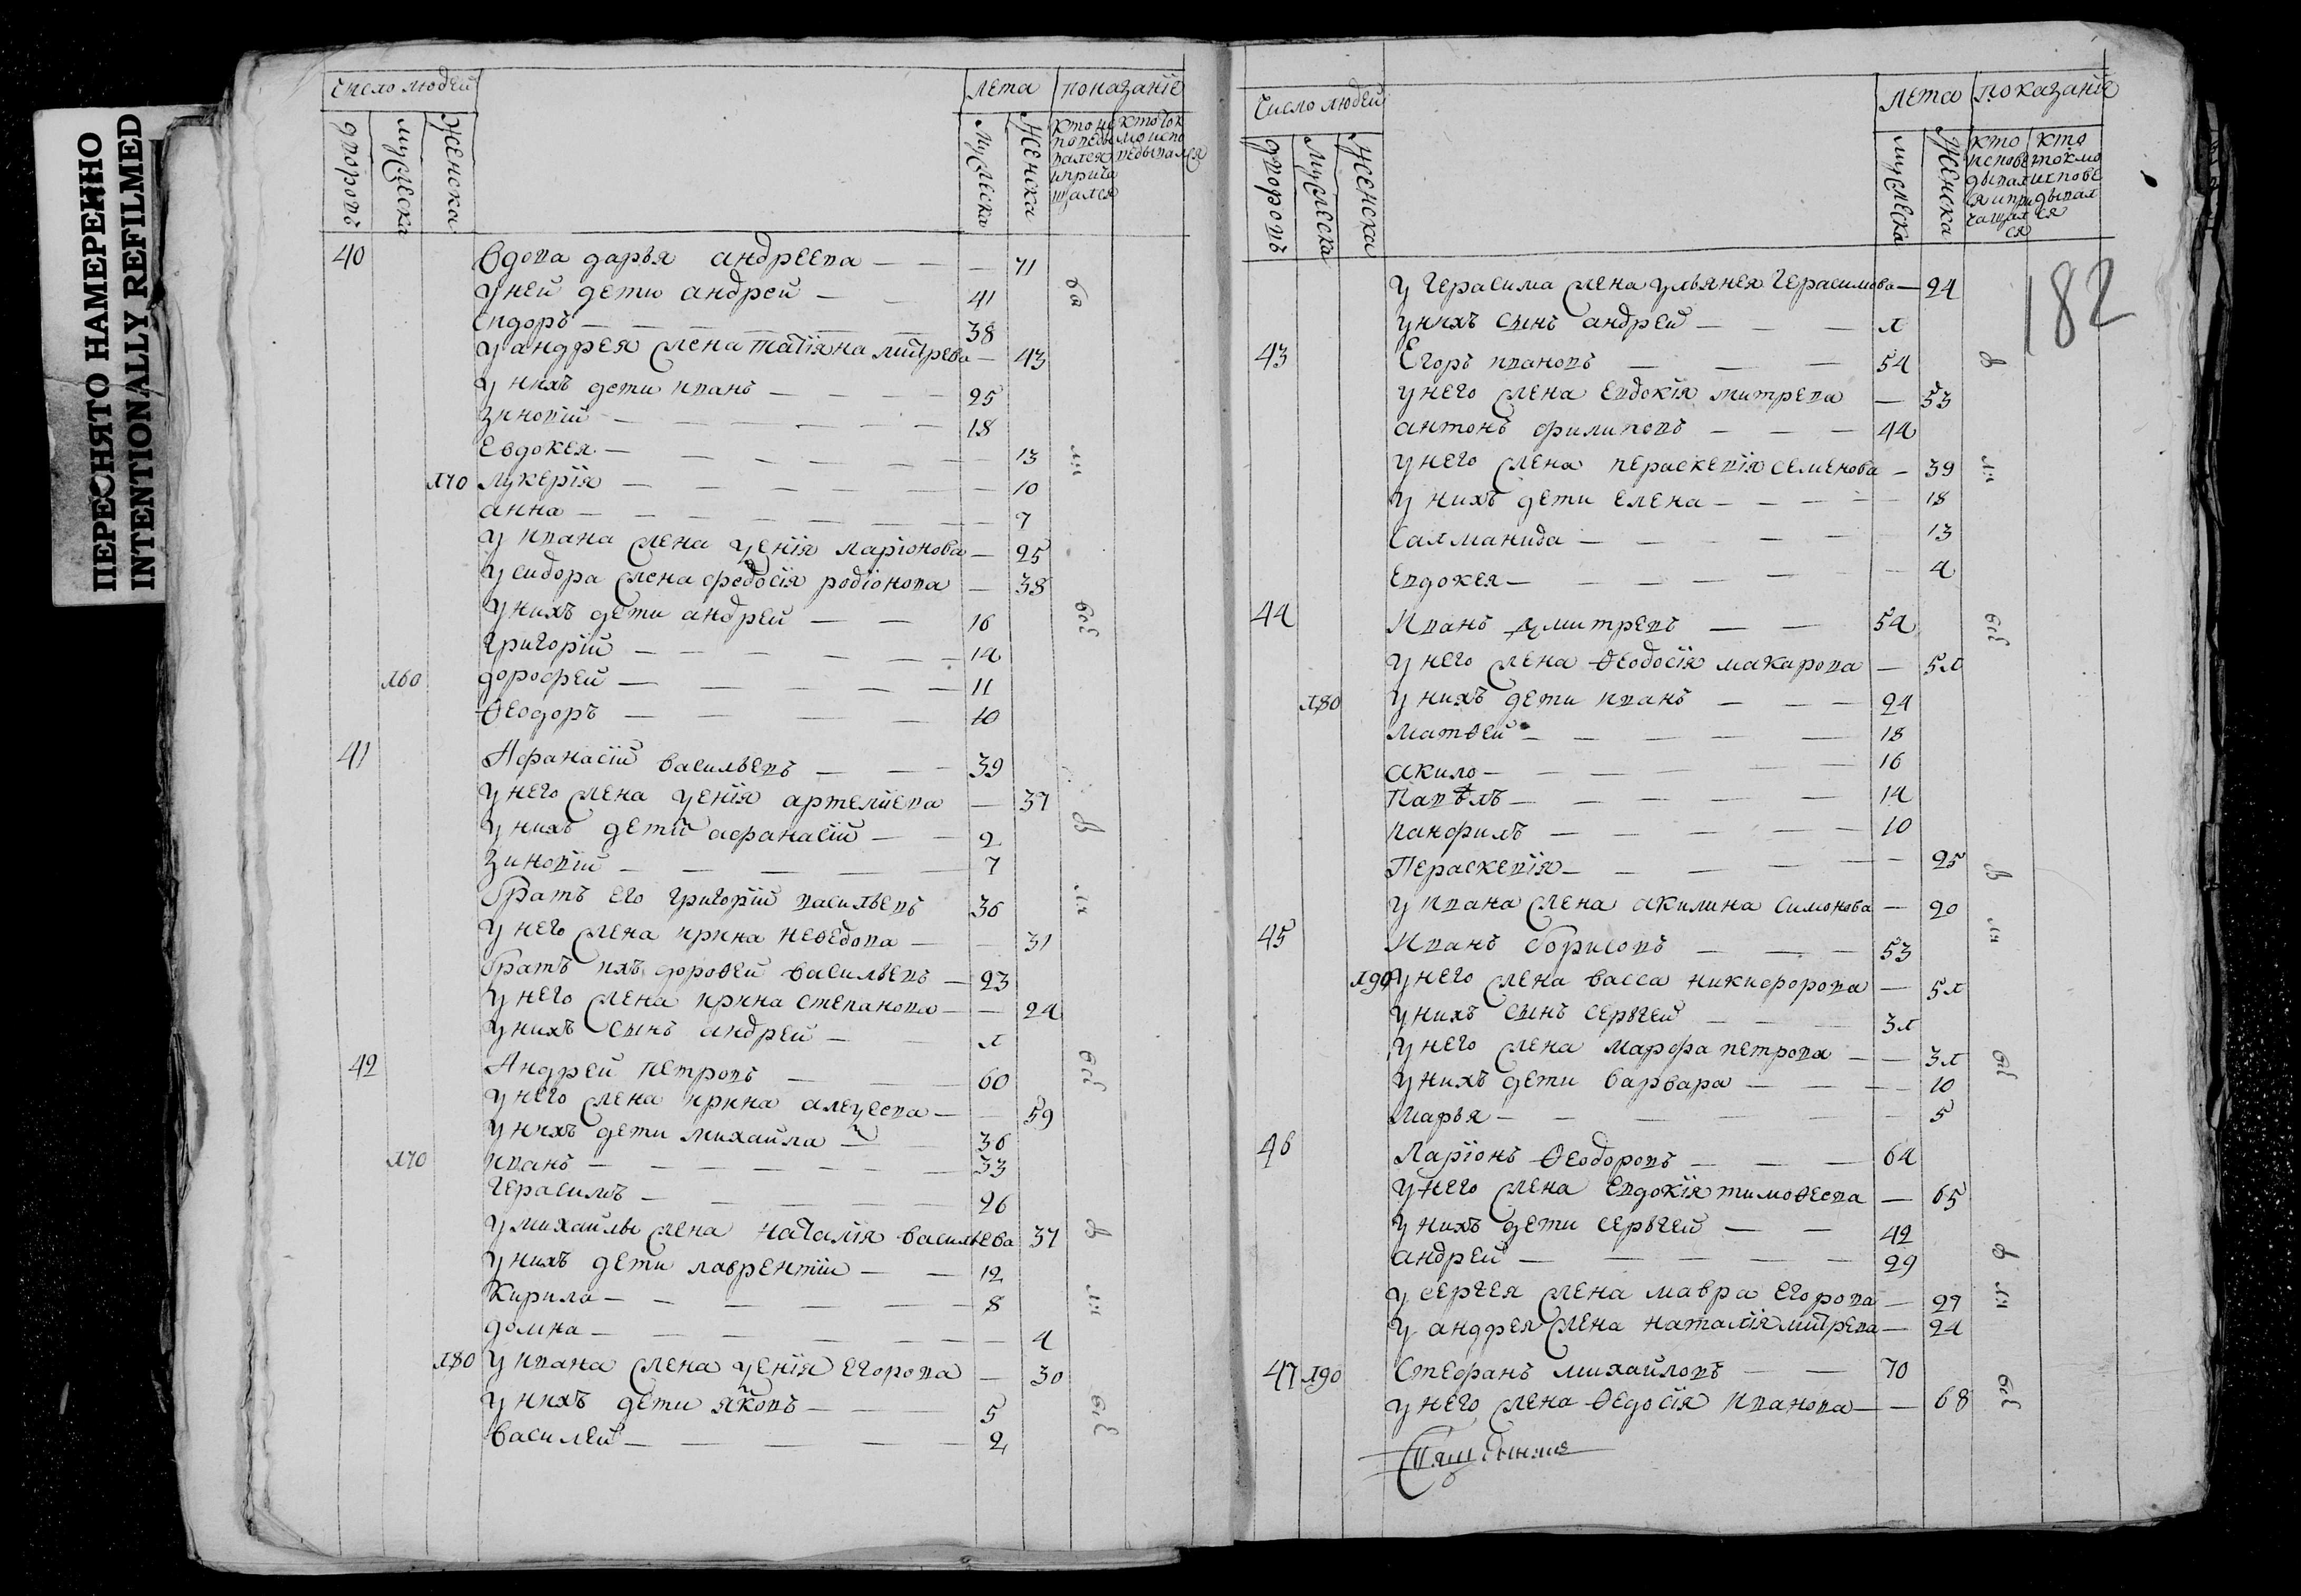 ПЕРЕСНЯТО НАМЕРЕННО
INTENTIONALLY REFILMED
Число людей
лета
показаніе
дворовъ
мужеска
женска
мужеска
женска
40 Вдова дарья андреева — 71
у ней дети андрей — 41
Сидоръ — 38
у андрея жена татіяна митрева — 43
у нихъ дети иванъ — 25
зиновій — 18
Евдокея — 13
170 лукерія — 10
анна — 7
у ивана жена ѯенія ларіонова — 25
у сидора жена федосія родіонова — 38
у нихъ дети андрей — 16
григорій — 14
160 дорофей — 11
Ѳеодоръ — 10
41 Афанасій васильевъ — 39
у него жена ѯенія артемиева — 37
у нихъ дети афанасій — 2
зиновій — 7
братъ его григорій васильевъ 36
у него жена ирина неѳедова — 31
братъ ихъ дороѳей васильевъ — 23
у него жена ирина степанова — 24
у нихъ сынъ андрей — 1
42 Андрей петровъ — 60
у него жена ирина алеѯеева — 59
у нихъ дети михайла — 36
170 иванъ — 33
герасимъ — 26
у михайлы жена наталія васильева 37
у нихъ дети лаврентій — 12
Кирила — 8
домна — 4
180 у ивана жена ѯенія егорова — 30
у нихъ дети яковъ — 5
василей — 2
Число людей
лета
показаніе
дворовъ
мужеска
женска
мужеска
женска
кто исповедывался и причащался
кто токмо исповедывался
182
у герасима жена ульянея герасимова — 24
у нихъ сынъ андрей — 1
43 Егоръ ивановъ — 54
у него жена евдокія митрева — 53
антонъ филиповъ — 44
у него жена пераскевія семенова — 39
у нихъ дети елена — 18
Салманида — 13
евдокея — 4
44 Иванъ дмитревъ — 54
у него жена Ѳеодосія макарова — 51
180 у нихъ дети иванъ — 24
матѳей — 18
акило — 16
Павѣлъ — 14
панфилъ — 10
Пераскевія — 25
у ивана жена акилина симонова — 20
45 Иванъ борисовъ — 53
190 у него жена васса никифорова — 51
у нихъ сынъ сергей — 31
у него жена марфа петрова — 31
у нихъ дети варвара — 10
марья — 5
46 Ларіонъ Ѳеодоровъ — 64
у него жена евдокія тимоѳеева — 65
у нихъ дети сергей — 42
андрей — 29
у сергея жена мавра егорова — 27
у андрея жена наталія митрева — 24
47 190 Стефанъ михайловъ — 70
у него жена Ѳедосія иванова — 68